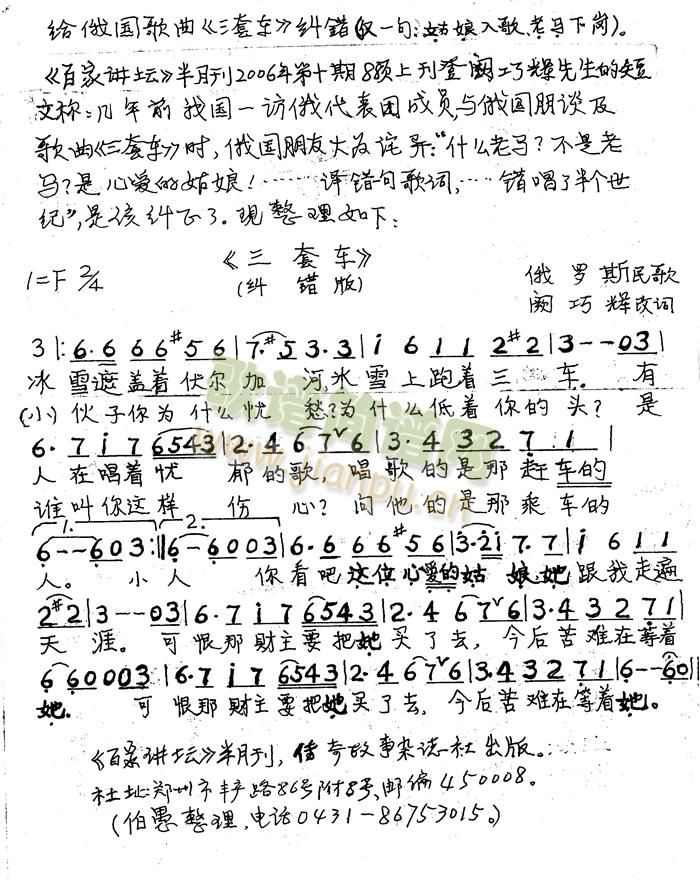 给俄国歌曲《三套车》纠错(仅一句:姑娘入歌,老马下岗)。
《百家讲坛》半月刊2006年第十期8页上刊登阙巧辉先生的短
文称:几年前我国一访俄代表团成员与俄国朋谈及
歌曲《三套车》时,俄国朋友大为诧异:“什么老马?不是老
马?是心爱的姑娘!……译错句歌词,…错唱了半个世
纪”,是该纠正了.现整理如下:
《三套车》
(纠错版)
1=F 2/4
俄罗斯民歌
阙巧辉改词
3|:6.6 6 6 #5 6|7.#5 3.3|i 6 1 1 2 #2|3--03|
冰雪遮盖着伏尔加河,冰雪上跑着三车.有
(小)伙子你为什么忧愁?为什么低着你的头?是
6.7 i 7 6543|2.4 6 7 6|3.4 3 2 7 1|
人在唱着忧郁的歌,唱歌的是那赶车的
谁叫你这样伤心?问他的是那乘车的
1. 2.
6--603:||6-6003|6.6 6 6 #5 6|3.2i 7.7|i 6 1 1
人。小人你看吧这位心爱的姑娘,她跟我走遍
2 #2|3--03|6.7 i 7 6543|2.4 6 7 6|3.4 3 2 7 1|
天涯.可恨那财主要把她买了去,今后苦难在等着
6 60003|6.7 i 7 6543|2.4 6 7 6|3.4 3 2 7 1|6--60||
她.可恨那财主要把她买了去,今后苦难在等着她。
歌谱简谱网
www.jianpu.cn
《百家讲坛》半月刊,传奇故事杂志社出版.
社址:郑州市丰产路86号附8号,邮编450008.
(伯愚整理,电话0431-86753015。)